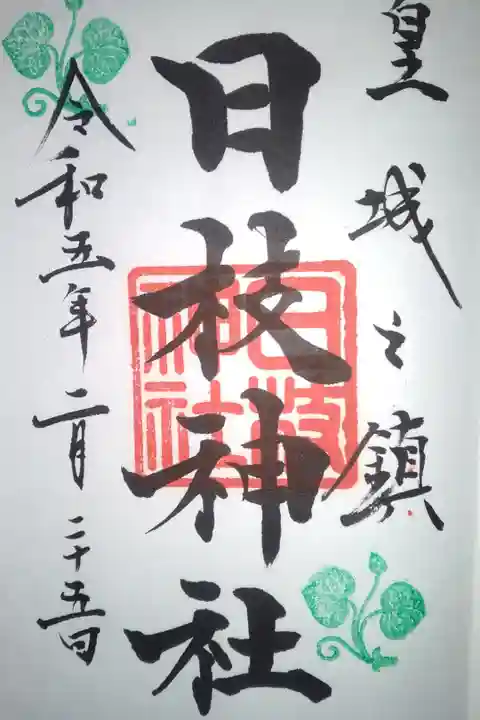 皇城之鎮
日枝神社
日枝神社
令和五年二月二十五日